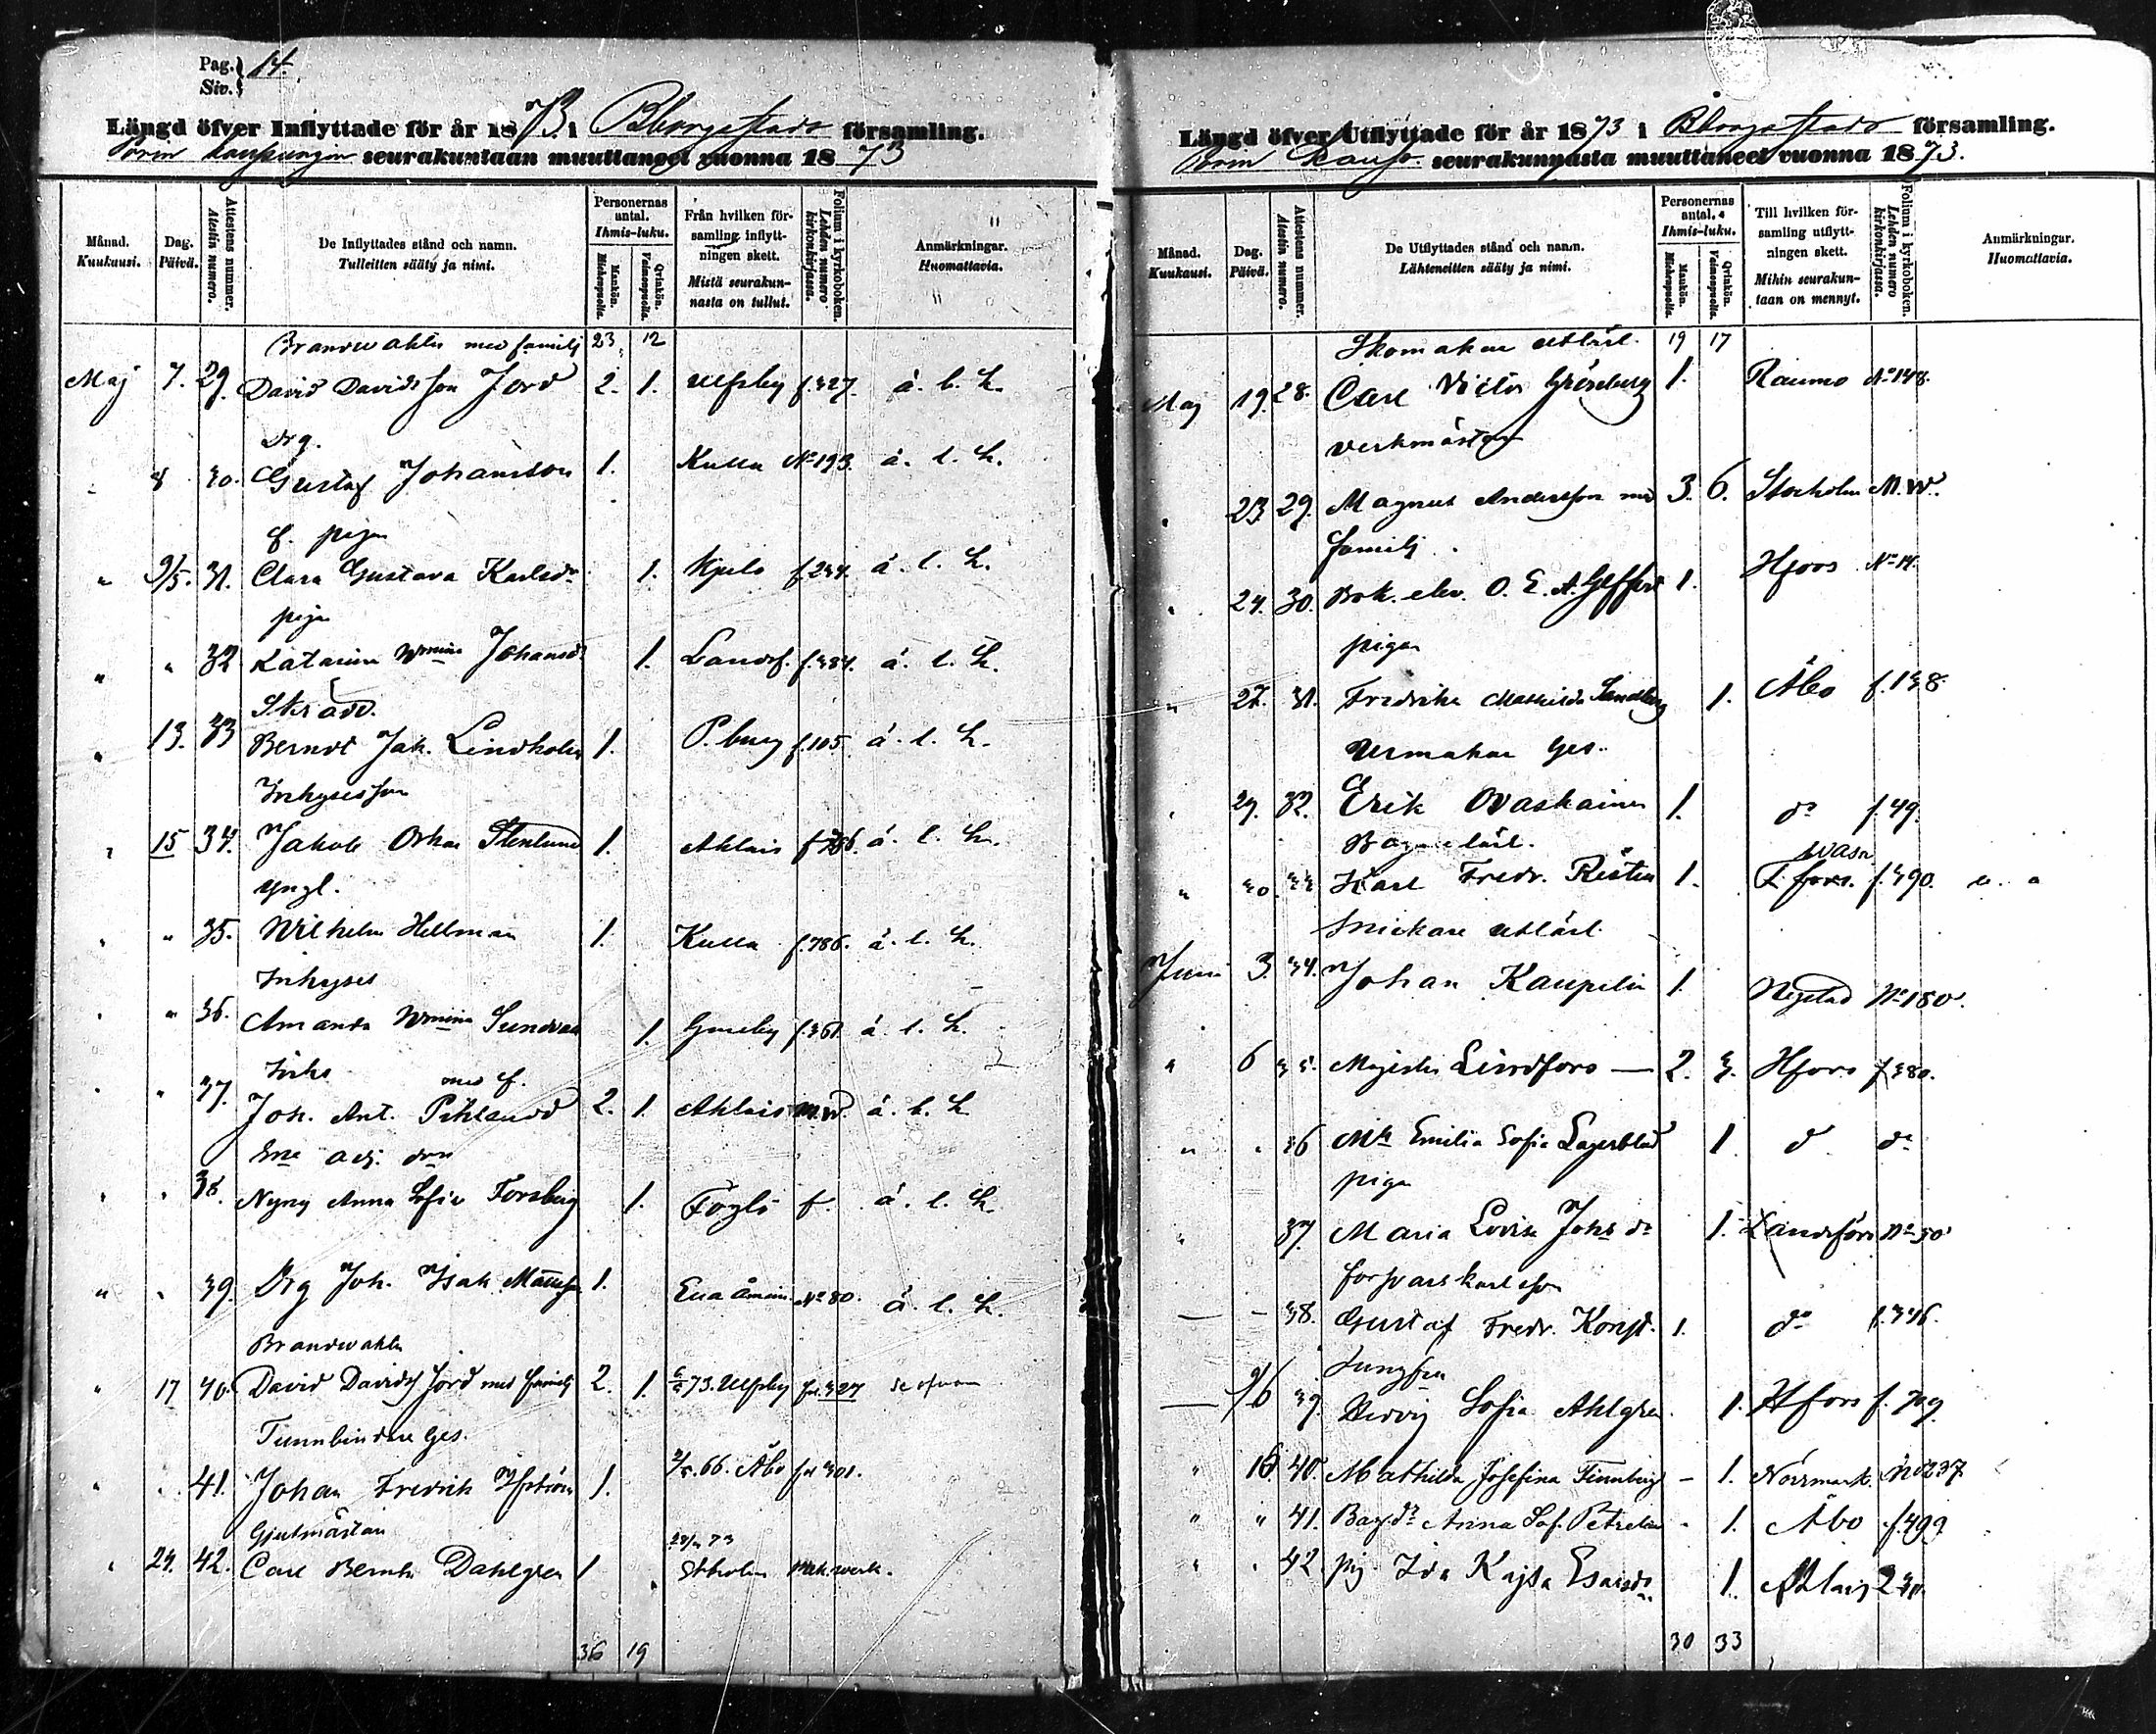 Pag. 14.
Siv.
Längd öfver Inflyttade för år 1873 i Bborgs stads församling.
Porin kaupungin seurakuntaan muuttaneet vuonna 1873
Månad. Kuukausi.
Dag. Päivä.
Attestens nummer. Atestin numero.
De Inflyttades stånd och namn. Tulleitten sääty ja nimi.
Personernas antal. Ihmis-luku.
Mankön. Miehenpuolia.
Qvinkön. Vaimonpuolia.
Från hvilken församling inflyttningen skett. Mistä seurakunnasta on tullut.
Folium i kyrkoboken. Lehden numero kirkonkirjassa.
Anmärkningar. Huomattavia.
Brandwaktn med familj 23 12
Maj 7. 29. David Davidsson Jord 2. 1. Ulfsby f. 327. á. b. h.
Drg.
" 8 30. Gustaf Johansson 1. Kulla No 193. á. l. h.
f. pigan
" 9/5. 31. Clara Gustava Karlsdr 1. Kjulo f. 244. á. l. h.
piga
" " 32 Katarina Wmina Johansd. 1. Landsf. f. 384. á. l. h.
Skrädd.
" 13. 33 Berndt Jak. Lindholm 1. P.burg f. 105 á. l. h.
Inhysesson
" 15 34. Jakob Oskar Stenlund 1. Ahlais á. l. h.
Yngl.
" " 35. Wilhelm Hellman 1. Kulla f. 786. á. l. h.
Inhyses
" " 36. Amanda Wmina 1. f. 361. á. l. h.
Inhs med f.
" " 37. Joh. Ant. Pihlaudd 2. 1. Ahlais M.W. á. b. h.
" " 38. Anna Sofia Forsberg 1. Föglö f. á. l. h.
" " 39. Drg Joh. Isak 1. No 80. á. l. h.
Brandwaktn
" 17 40. David Davidss Jord med familj 2. 1. 73. Ulfsby fol. 327 se ofvan
Tunnbindare Ges.
" " 41. Johan Fredrik 1. 66. Åbo fol 301.
Gjutmästaren
" 24. 42. Carl Bernh. Dahlgren 1 73 Stholm Mek. werk.
36 19
Längd öfver Utflyttade för år 1873 i Bborgs stads församling.
Porin Kaup. seurakunnasta muuttaneet vuonna 1873.
Månad. Kuukausi.
Dag. Päivä.
Attestens nummer. Atestin numero.
De Utflyttades stånd och namn. Lähteneitten sääty ja nimi.
Personernas antal. Ihmis-luku.
Mankön. Miehenpuolia.
Qvinkön. Vaimonpuolia.
Till hvilken församling utflyttningen skett. Mihin seurakuntaan on mennyt.
Folium i kyrkoboken. Lehden numero kirkonkirjassa.
Anmärkningar. Huomattavia.
Skomakare utlärl. 19 17
Maj 19. 28. Carl Victor Gröneberg 1. Raumo No 148.
Verkmästar
" 23 29. Magnus Andersson med 3. 6. Stockholm M.W.
familj.
" 24. 30. Bok. elev. O. E. A. 1. Hfors No 14.
pigan
" 27. 31. Fredrika Mathilda Sandberg 1. Åbo f. 138.
Urmakare Ges.
" 29. 32. Erik Ovaskainen 1. do f. 49.
Bagarelärl. Wasa
" 30. 33 Karl Fredr. Risten 1. f. 390.
Snickare utlärl.
Juni 3. 34. Johan Kaupelin 1. Nystad No 180.
" 6 35. Magister Lindfors — 2. 3. Hfors f. 380.
" " 36 Emilia Sofia Lagerblad 1 d do
piga
" 37. Maria Lovisa Johsdr 1. Landsförs No 50
forsvarskarlsson
— — 38. Gustaf Fredr. Konst. 1. do f. 346.
Jungfru
— 9/6 39. Hedvig Sofia Ahlgren. 1. Hfors f. 709
" 16 40. Mathilda Josefina Finnberg — 1. Norrmark. No 237
" " 41. Anna Sof. Petrelin - 1. Åbo f. 499
" " 42. pig. Ida Kajsa Esaisdr 1. Ahlais
30 33